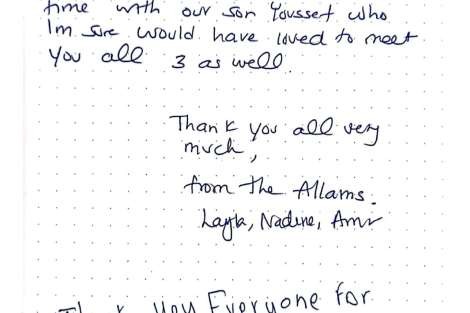 time with our son Youssef who
Im sure would have loved to meet
You all 3 as well.
Thank you all very
much,
from the Allams.
Layla, Nadine, Amr
you Everyone for